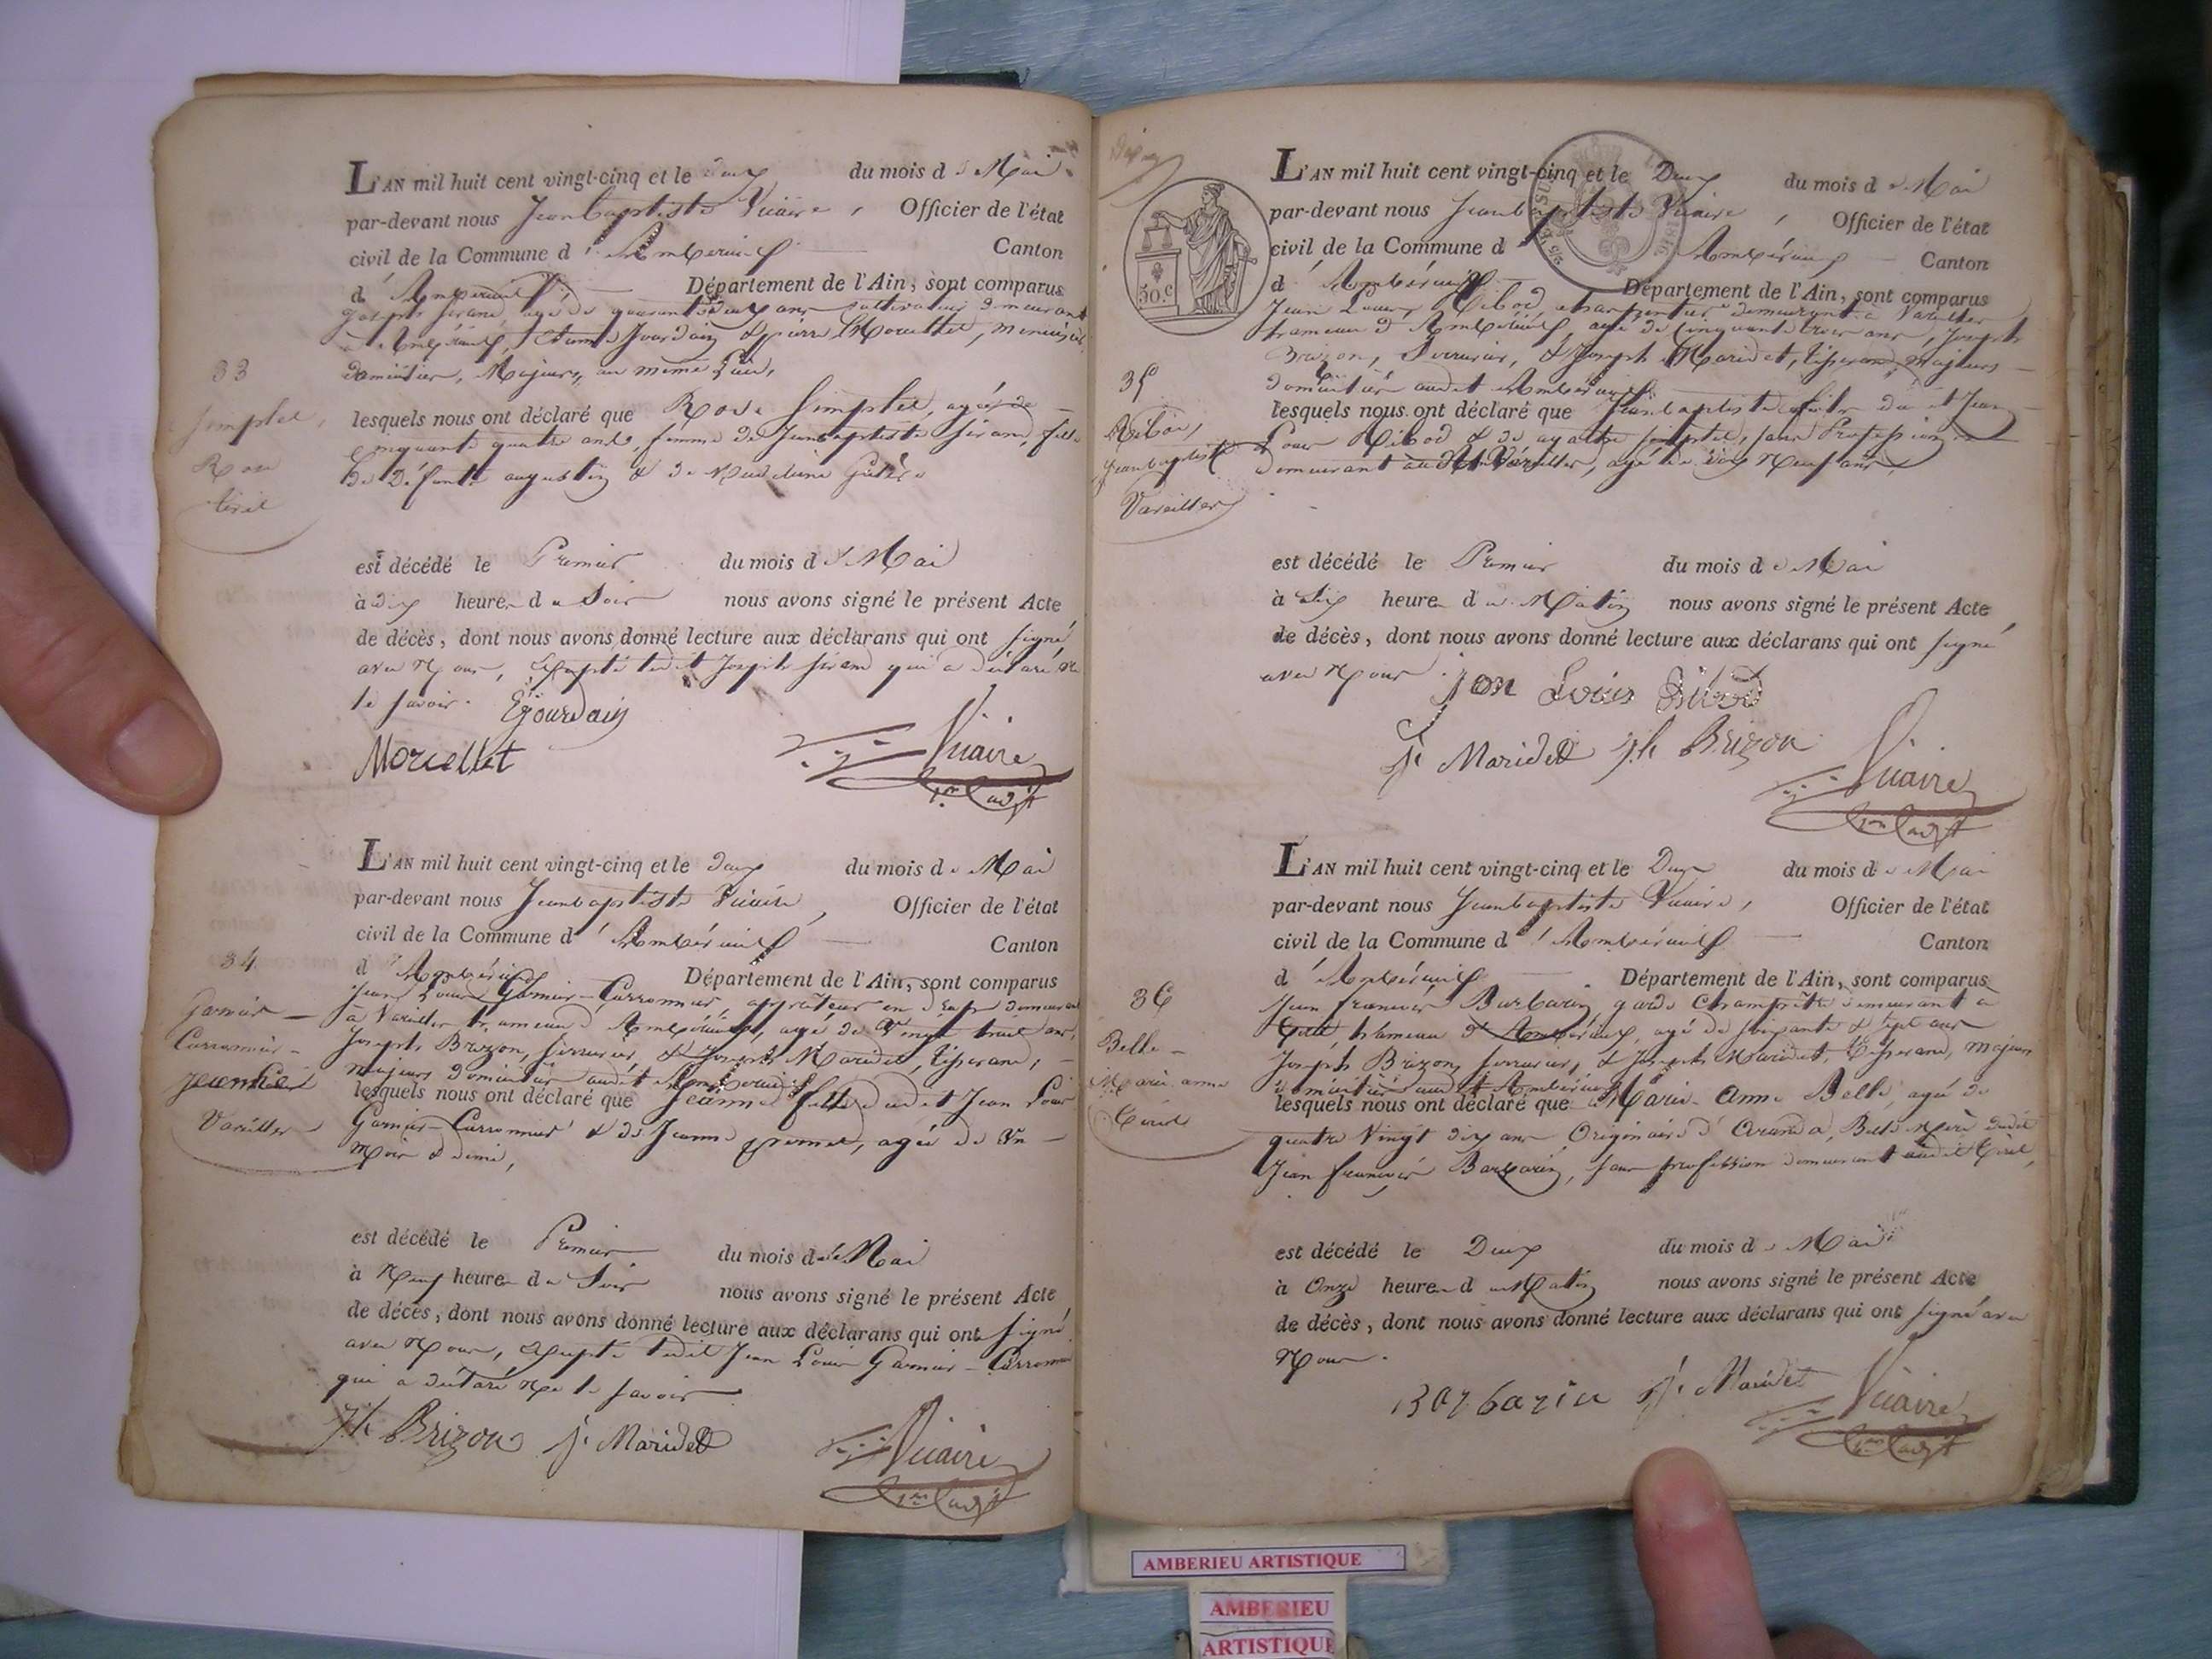 L'AN mil huit cent vingt-cinq et le deux du mois de Mai
par-devant nous Jeanbaptiste Vicaire, Officier de l'état
civil de la Commune d'Ambérieux Canton
d'Ambérieux Département de l'Ain, sont comparus
joseph sirand, agé de quarante deux ans cultivateur demeurant
a Ambérieux, Etienne Jourdain & pierre Morcellet, menuisier
33
domiciliés, Majeurs, au même Lieu,
Simplet,
Rose
tiret
lesquels nous ont déclaré que Rose Simplet, agée de
cinquante quatre ans, femme de Jeanbaptiste sirand, fille
de Défunts augustin & de Madelaine
est décédé le Premier du mois de Mai
à dix heure du Soir nous avons signé le présent Acte
de décès, dont nous avons donné lecture aux déclarans qui ont signé
avec Nous, Excepté ledit Joseph sirand qui a déclaré ne
le savoir. EJourdain
Morcellet Vicaire
L'AN mil huit cent vingt-cinq et le deux du mois de Mai
par-devant nous Jeanbaptiste Vicaire, Officier de l'état
civil de la Commune d'Ambérieux Canton
d'Ambérieux Département de l'Ain, sont comparus
34
Jean Louis Garnier-Carronnier, en draps demeurant
Garnier-
a Vareilles hameau d'Ambérieux, agé de Vingt huit ans,
Carronnier-
Joseph Brizon, serrurier, & Joseph Maridet, tisserand,
Jeanne
majeurs domiciliés audit Ambérieux
Vareilles
lesquels nous ont déclaré que Jeanne fille dudit Jean Louis
Garnier-Carronnier & de Jeanne, agée de Un
Mois & demi,
est décédé le Premier du mois de Mai
à Neuf heure du Soir nous avons signé le présent Acte
de décès, dont nous avons donné lecture aux déclarans qui ont signé
avec Nous, Excepté ledit Jean Louis Garnier-Carronnier
qui a déclaré Ne le savoir
Jh Brizon Jh Maridet Vicaire
L'AN mil huit cent vingt-cinq et le Deux du mois de Mai
par-devant nous Jeanbaptiste Vicaire, Officier de l'état
civil de la Commune d'Ambérieux Canton
d'Ambérieux Département de l'Ain, sont comparus
50.c
Jean Louis Ribod, charpentier demeurant a Vareilles
hameau d'Ambérieux, agé de Cinquante trois ans, Joseph
Brizon, Serrurier, & Joseph Maridet, tisserand, Majeurs
35
domiciliés audit Ambérieux
Ribod,
Jeanbaptiste
Vareilles
lesquels nous ont déclaré que Jeanbaptiste fils dudit Jean
Louis Ribod & de agathe Simplet, sans Profession
demeurant audit Vareilles, agé de dix Neuf ans
est décédé le Premier du mois de Mai
à Six heure du Matin nous avons signé le présent Acte
de décès, dont nous avons donné lecture aux déclarans qui ont signé
avec Nous. Jan Louis Ribod
Jh Maridet Jh Brizon Vicaire
L'AN mil huit cent vingt-cinq et le Deux du mois de Mai
par-devant nous Jeanbaptiste Vicaire, Officier de l'état
civil de la Commune d'Ambérieux Canton
d'Ambérieux Département de l'Ain, sont comparus
36
Jean francois Barbarin, garde Champêtre demeurant a
Tiret, hameau d'Ambérieux, agé de soixante & sept ans
Belle-
Joseph Brizon, serrurier, & Joseph Maridet, tisserand, Majeurs
Marie anne
domiciliés audit Ambérieux
Tiret
lesquels nous ont déclaré que Marie-Anne Belle, agée de
quatre Vingt dix ans Originaire d'Aranda, Belle Mère dudit
Jean francois Barbarin, sans profession demeurant audit Tiret,
est décédé le Deux du mois de Mai
à Onze heure du Matin nous avons signé le présent Acte
de décès, dont nous avons donné lecture aux déclarans qui ont signé avec
Nous.
Barbarin Jh Maridet Vicaire
AMBERIEU ARTISTIQUE
AMBERIEU
ARTISTIQUE